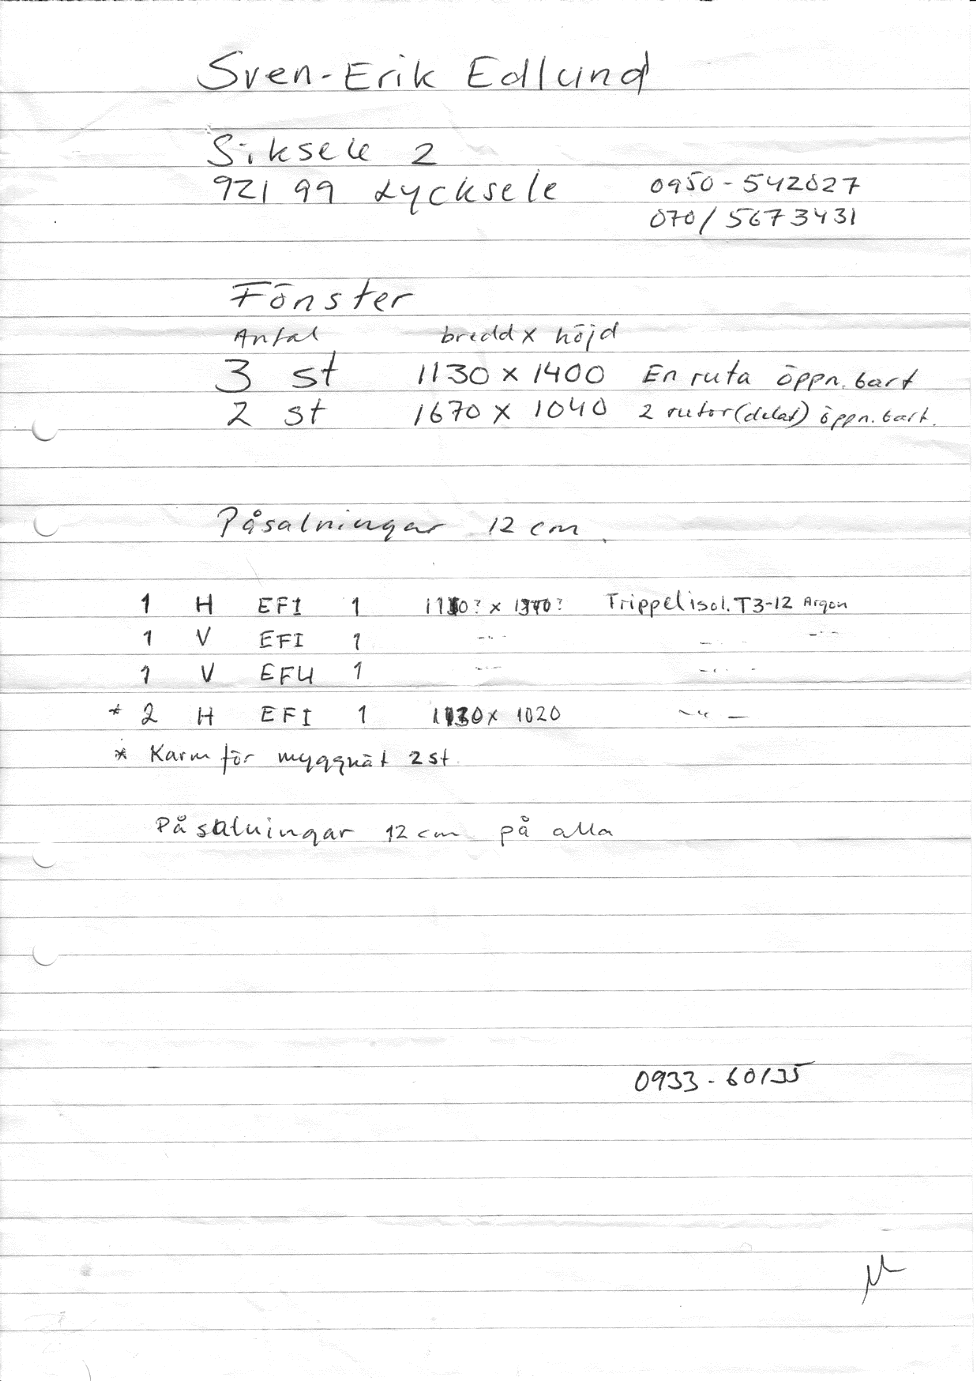 Sven-Erik Edlund
Siksele 2
921 99 Lycksele 0950-542027
070/5673431
Fönster
Antal bredd x höjd
3 st 1130 x 1400 En ruta öppn.bart
2 st 1670 x 1040 2 rutor(delat) öppn.bart.
Påsalningar 12 cm.
1 H EFI 1 x Trippelisol. T3-12 Argon
1 V EFI 1 -"- -"- -"-
1 V EFU 1 -"- -"-
* 2 H EFI 1 x 1020 -"-
* Karm för myggnät 2 st
Påsalningar 12 cm på alla
0933-60135